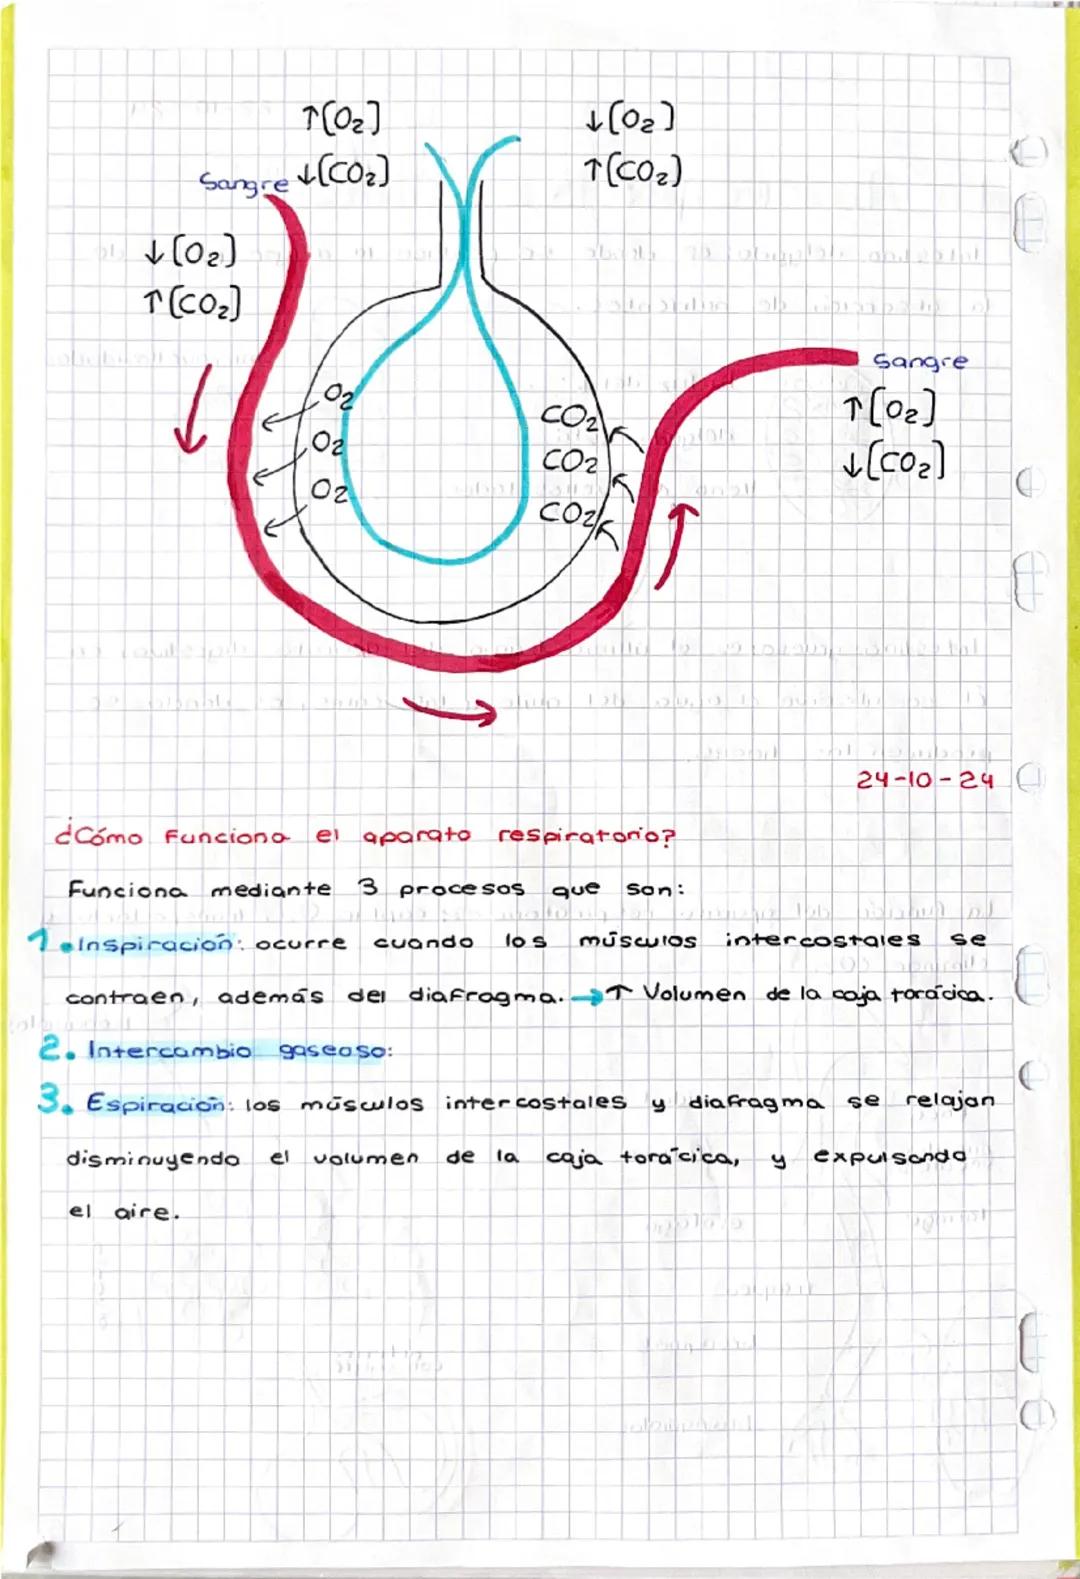 ↑[O₂]
↓[CO₂]
↓[O₂]
↑[CO₂]
Sangre
↓[O₂]
↑[CO₂]
O₂
O₂
O₂
CO₂
CO₂
CO₂
Sangre
↑[O₂]
↓[CO₂]
24-10-24
¿Cómo Funciona el aparato respiratorio?
Funciona mediante 3 procesos que son:
1. Inspiración: ocurre cuando los músculos intercostales se
contraen, además del diafragma. → ↑ Volumen de la caja torácica.
2. Intercambio gaseoso:
3. Espiración: los músculos intercostales y diafragma se relajan
disminuyendo el volumen de la caja torácica, y expulsando
el aire.